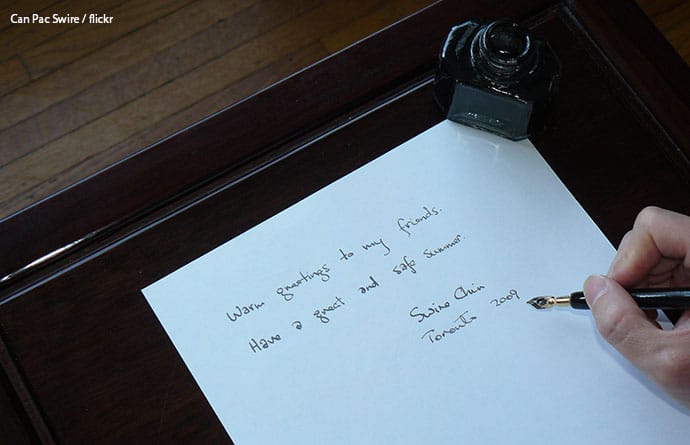 Can Pac Swire / flickr
Warm greetings to my friends.
Have a great and safe summer.
Swire Chin
Toronto 2009